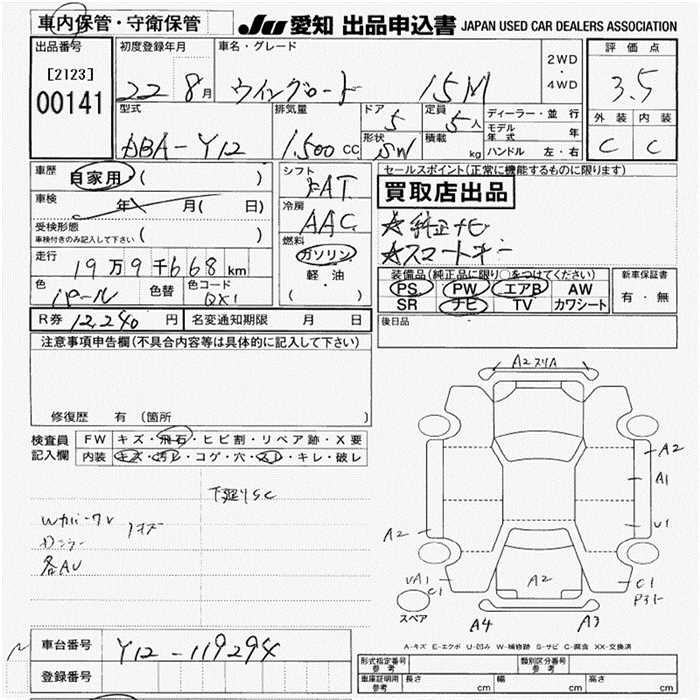 車内保管・守衛保管 JU 愛知 出品申込書 JAPAN USED CAR DEALERS ASSOCIATION
出品番号 初度登録年月 車名・グレード 2WD・4WD 評価点
[2123] 00141 22 8月 ウイングロード 15M 3.5
型式 排気量 ドア 5 定員 5人 ディーラー・並行 外装 内装
DBA-Y12 1,500cc 形状 SW 積載 kg モデル年式 年 C C
ハンドル 左・右
車歴 自家用 ( ) シフト FAT セールスポイント(正常に機能するものに限ります)
車検 年 月( 日) 冷房 AAC 買取店出品
受検形態 ( ) ☆純正ナビ
車検付きのみ記入して下さい 燃料 ☆スマートキー
走行 19万9千668km ガソリン 装備品(純正品に限り○をつけてください) 新車保証書
軽・油 PS PW エアB AW 有・無
色 パール 色替 色コード QX1 ( ) SR ナビ TV カワシート
R券 12,240円 名変通知期限 月 日 後日品
注意事項申告欄(不具合内容等は具体的に記入して下さい)
修復歴 有 (箇所
検査員記入欄 FW キズ・飛石・ヒビ割・リペア跡・X要
内装 キズ・汚レ・コゲ・穴・スレ・キレ・破レ
下廻りSC
各AU
A2スリA
A2
A1
U1
A2
UA1
C1
A2
C1
スペア A4 A3
A-キズ E-エクボ U-凹み W-補修跡 S-サビ C-腐食 XX-交換済
車台番号 Y12-119294
登録番号
形式指定番号 参考 類別区分番号 参考
車庫証明用 参考 長さ cm 幅 cm 高さ cm